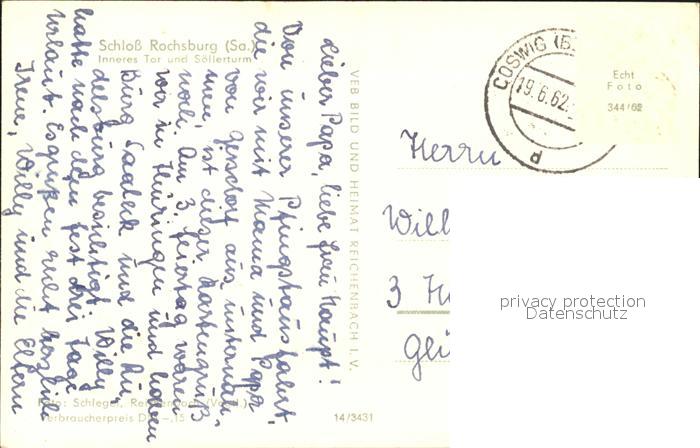 Schloß Rochsburg (Sa.)
Inneres Tor und Söllerturm
Lieber Papa, liebe Frau Haupt!
Von unserer Pfingstausfahrt,
die wir mit Mama und Papa
von Gersdorf aus unternah-
men, ist dieser Kartengruß
noch. Am 3. Feiertag waren
wir in Thüringen und haben
Burg Saaleck und die Ru-
delsburg besichtigt. Willy
hatte nach dem Fest drei Tage
Urlaub. Es grüßen recht herzlich
Irene, Willy und die Eltern
VEB BILD UND HEIMAT REICHENBACH I. V.
Foto: Schlegel, Reichenbach (Vogtl.)
Verbraucherpreis DM -,15
14/3431
COSWIG (B
19.6.62
P
Echt
Foto
344/62
Herrn
Will
3
privacy protection
Datenschutz